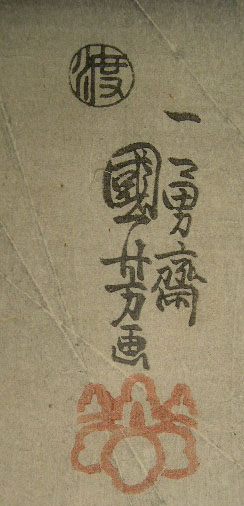 渡
一勇齋
國芳画